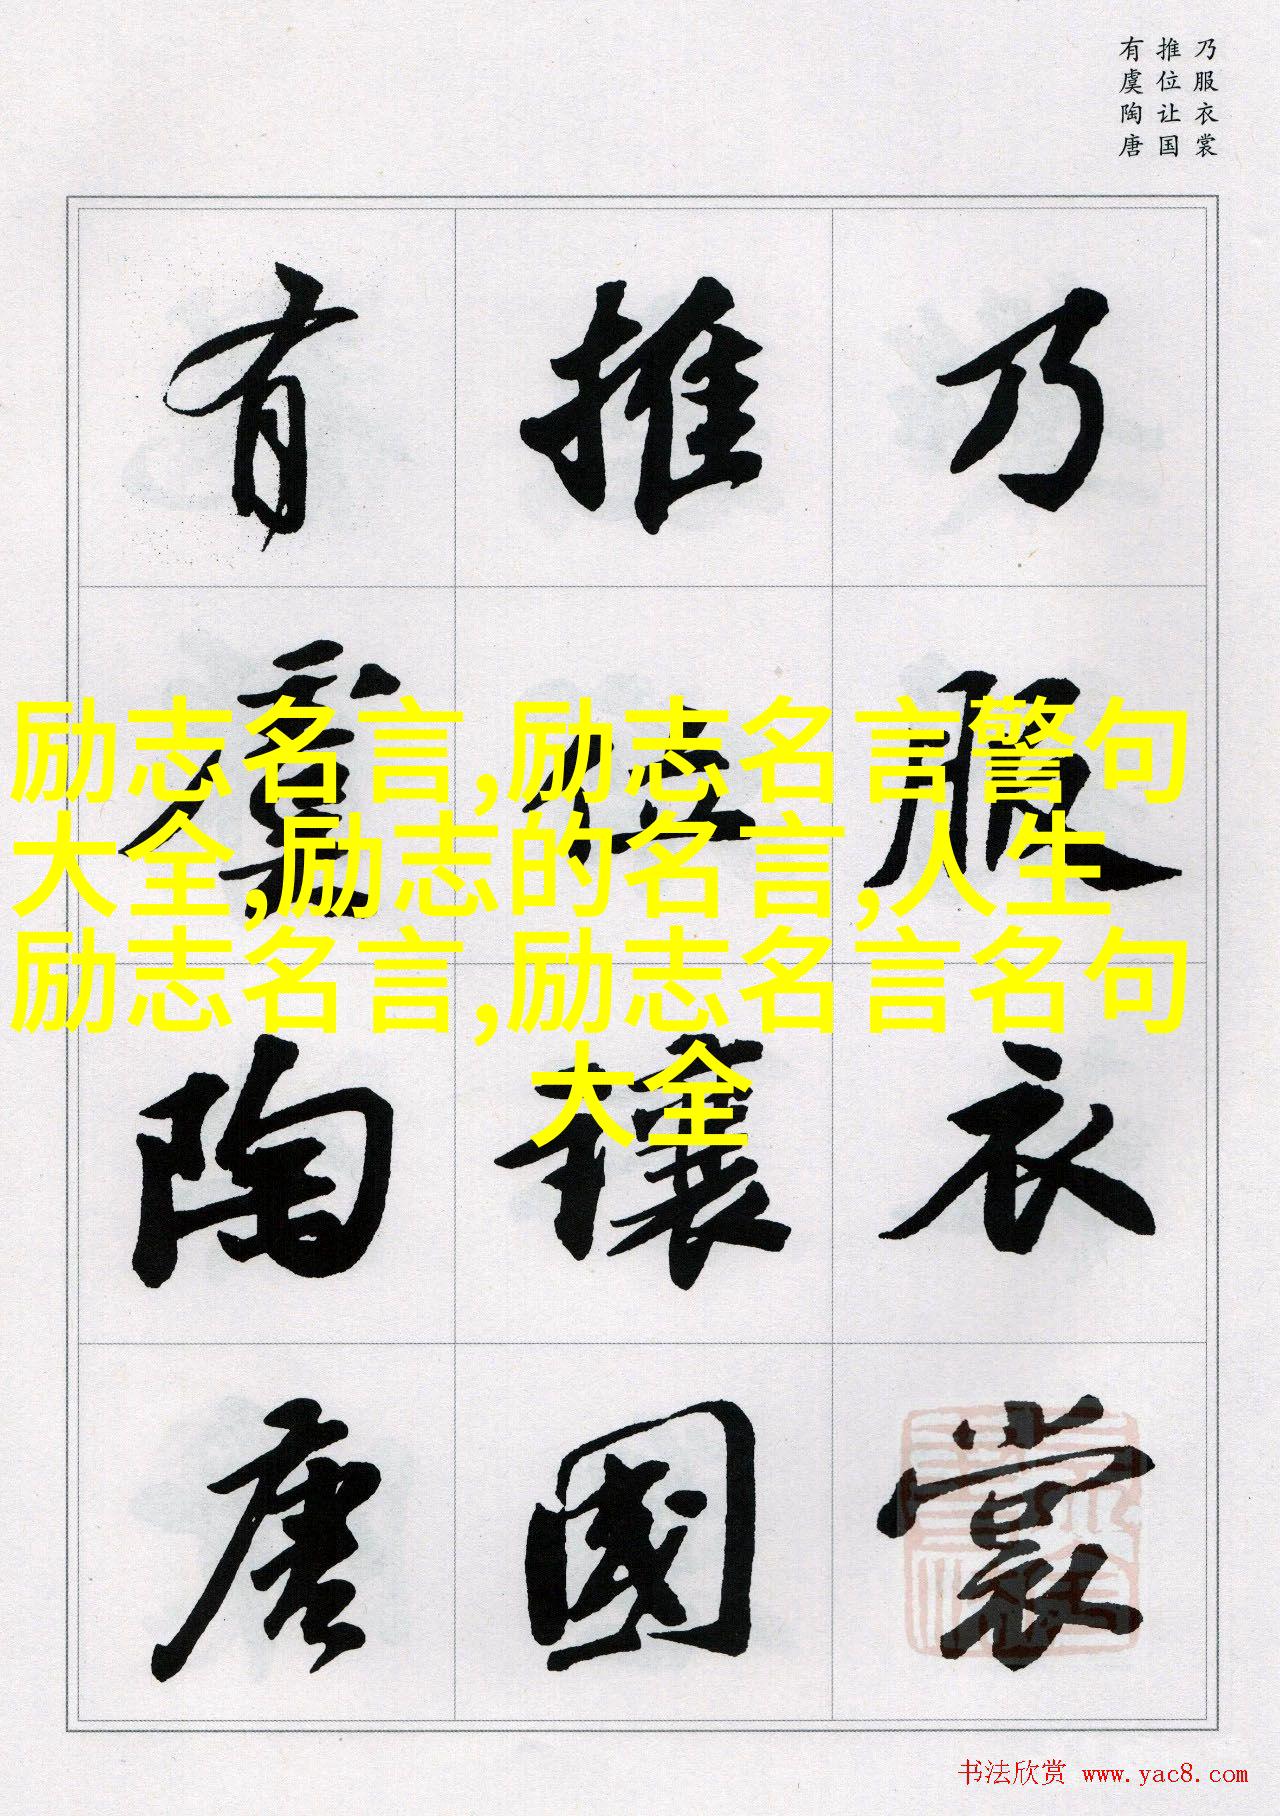 乃服衣裳
推位让国
有虞陶唐
乃服衣裳
推位讓國
有虞陶唐
励志名言,励志名言警句
大全,励志的名言,人生
励志名言,励志名言名句
大全
书法欣赏 www.yac8.com